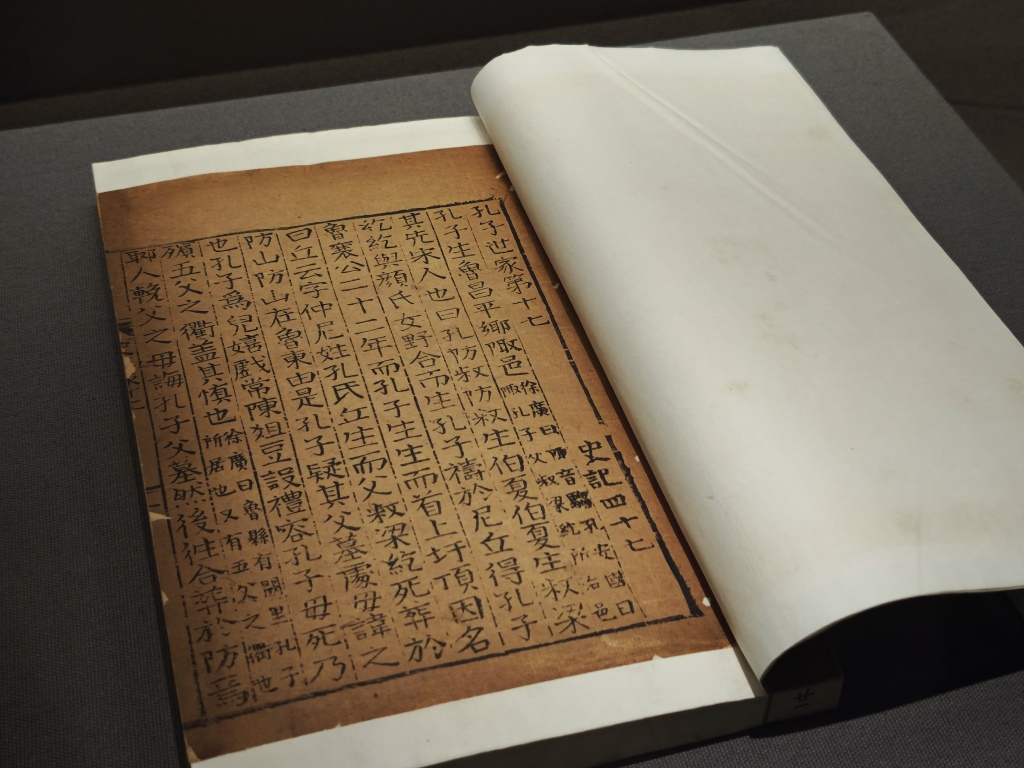 孔子世家第十七 史記四十七
孔子生魯昌平鄉陬邑 徐廣曰陬音騶孔安國曰
陬孔子父叔梁紇所治邑
其先宋人也曰孔防叔防叔生伯夏伯夏生叔梁
紇紇與顏氏女野合而生孔子禱於尼丘得孔子
魯襄公二十二年而孔子生生而首上圩頂因名
曰丘云字仲尼姓孔氏丘生而父叔梁紇死葬於
防山防山在魯東由是孔子疑其父墓處母諱之
也孔子爲兒嬉戲常陳俎豆設禮容孔子母死乃
殯五父之衢蓋其慎也 徐廣曰魯縣有闕里孔子
所居也又有五父之衢也
郰人輓父之母誨孔子父墓然後往合葬於防焉